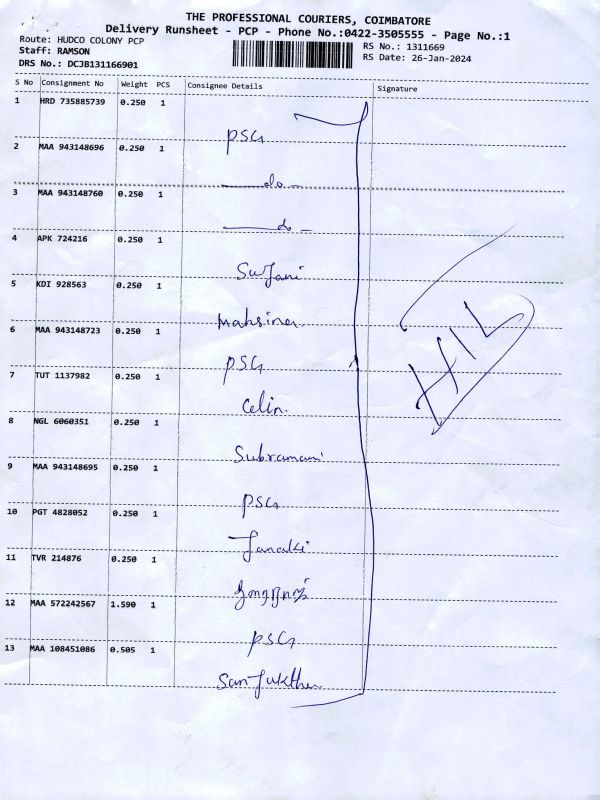 THE PROFESSIONAL COURIERS, COIMBATORE
Delivery Runsheet - PCP - Phone No.:0422-3505555 - Page No.:1
Route: HUDCO COLONY PCP RS No.: 1311669
Staff: RAMSON RS Date: 26-Jan-2024
DRS No.: DCJB131166901
S No Consignment No Weight PCS Consignee Details Signature
1 HRD 735885739 0.250 1
PSG
2 MAA 943148696 0.250 1
do
3 MAA 943148760 0.250 1
do
4 APK 724216 0.250 1
Sujani
5 KDI 928563 0.250 1
Mahsina
6 MAA 943148723 0.250 1
PSG
7 TUT 1137982 0.250 1
Celin.
8 NGL 6060351 0.250 1
Subramani
9 MAA 943148695 0.250 1
PSG
10 PGT 4828052 0.250 1
Janaki
11 TVR 214876 0.250 1
12 MAA 572242567 1.590 1
PSG
13 MAA 108451086 0.505 1